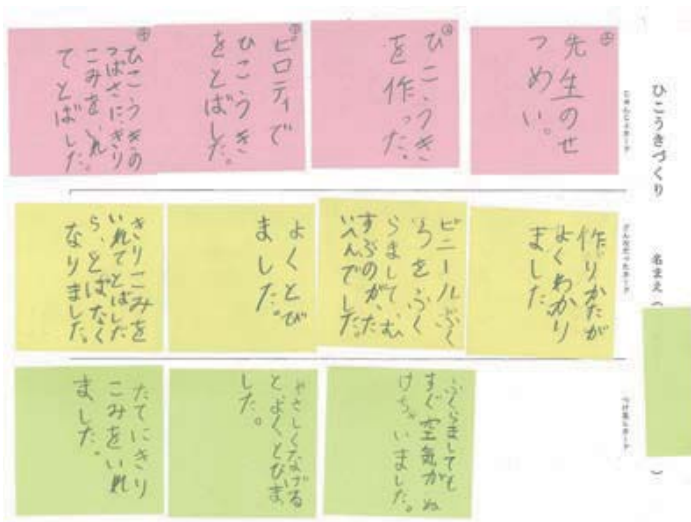 ひこうきづくり 名まえ( )
じゅんじょカード
先生のせ
つめい。
ひこうき
を作った。
ピロティで
ひこうき
をとばした。
ひこうきの
つばさにきり
こみをいれ
てとばした。
どんなだったカード
作りかたが
よくわかり
ました
ビニールぶく
ろをふく
らまして、む
すぶのが、た
いへんでした。
よくとび
ました。
きりこみを
いれてとばした
ら、とばなく
なりました。
つけ足しカード
ふくらましても
すぐ空気がぬ
けちゃいました。
やさしくなげる
とよくとびま
した。
たてにきり
こみをいれ
ました。